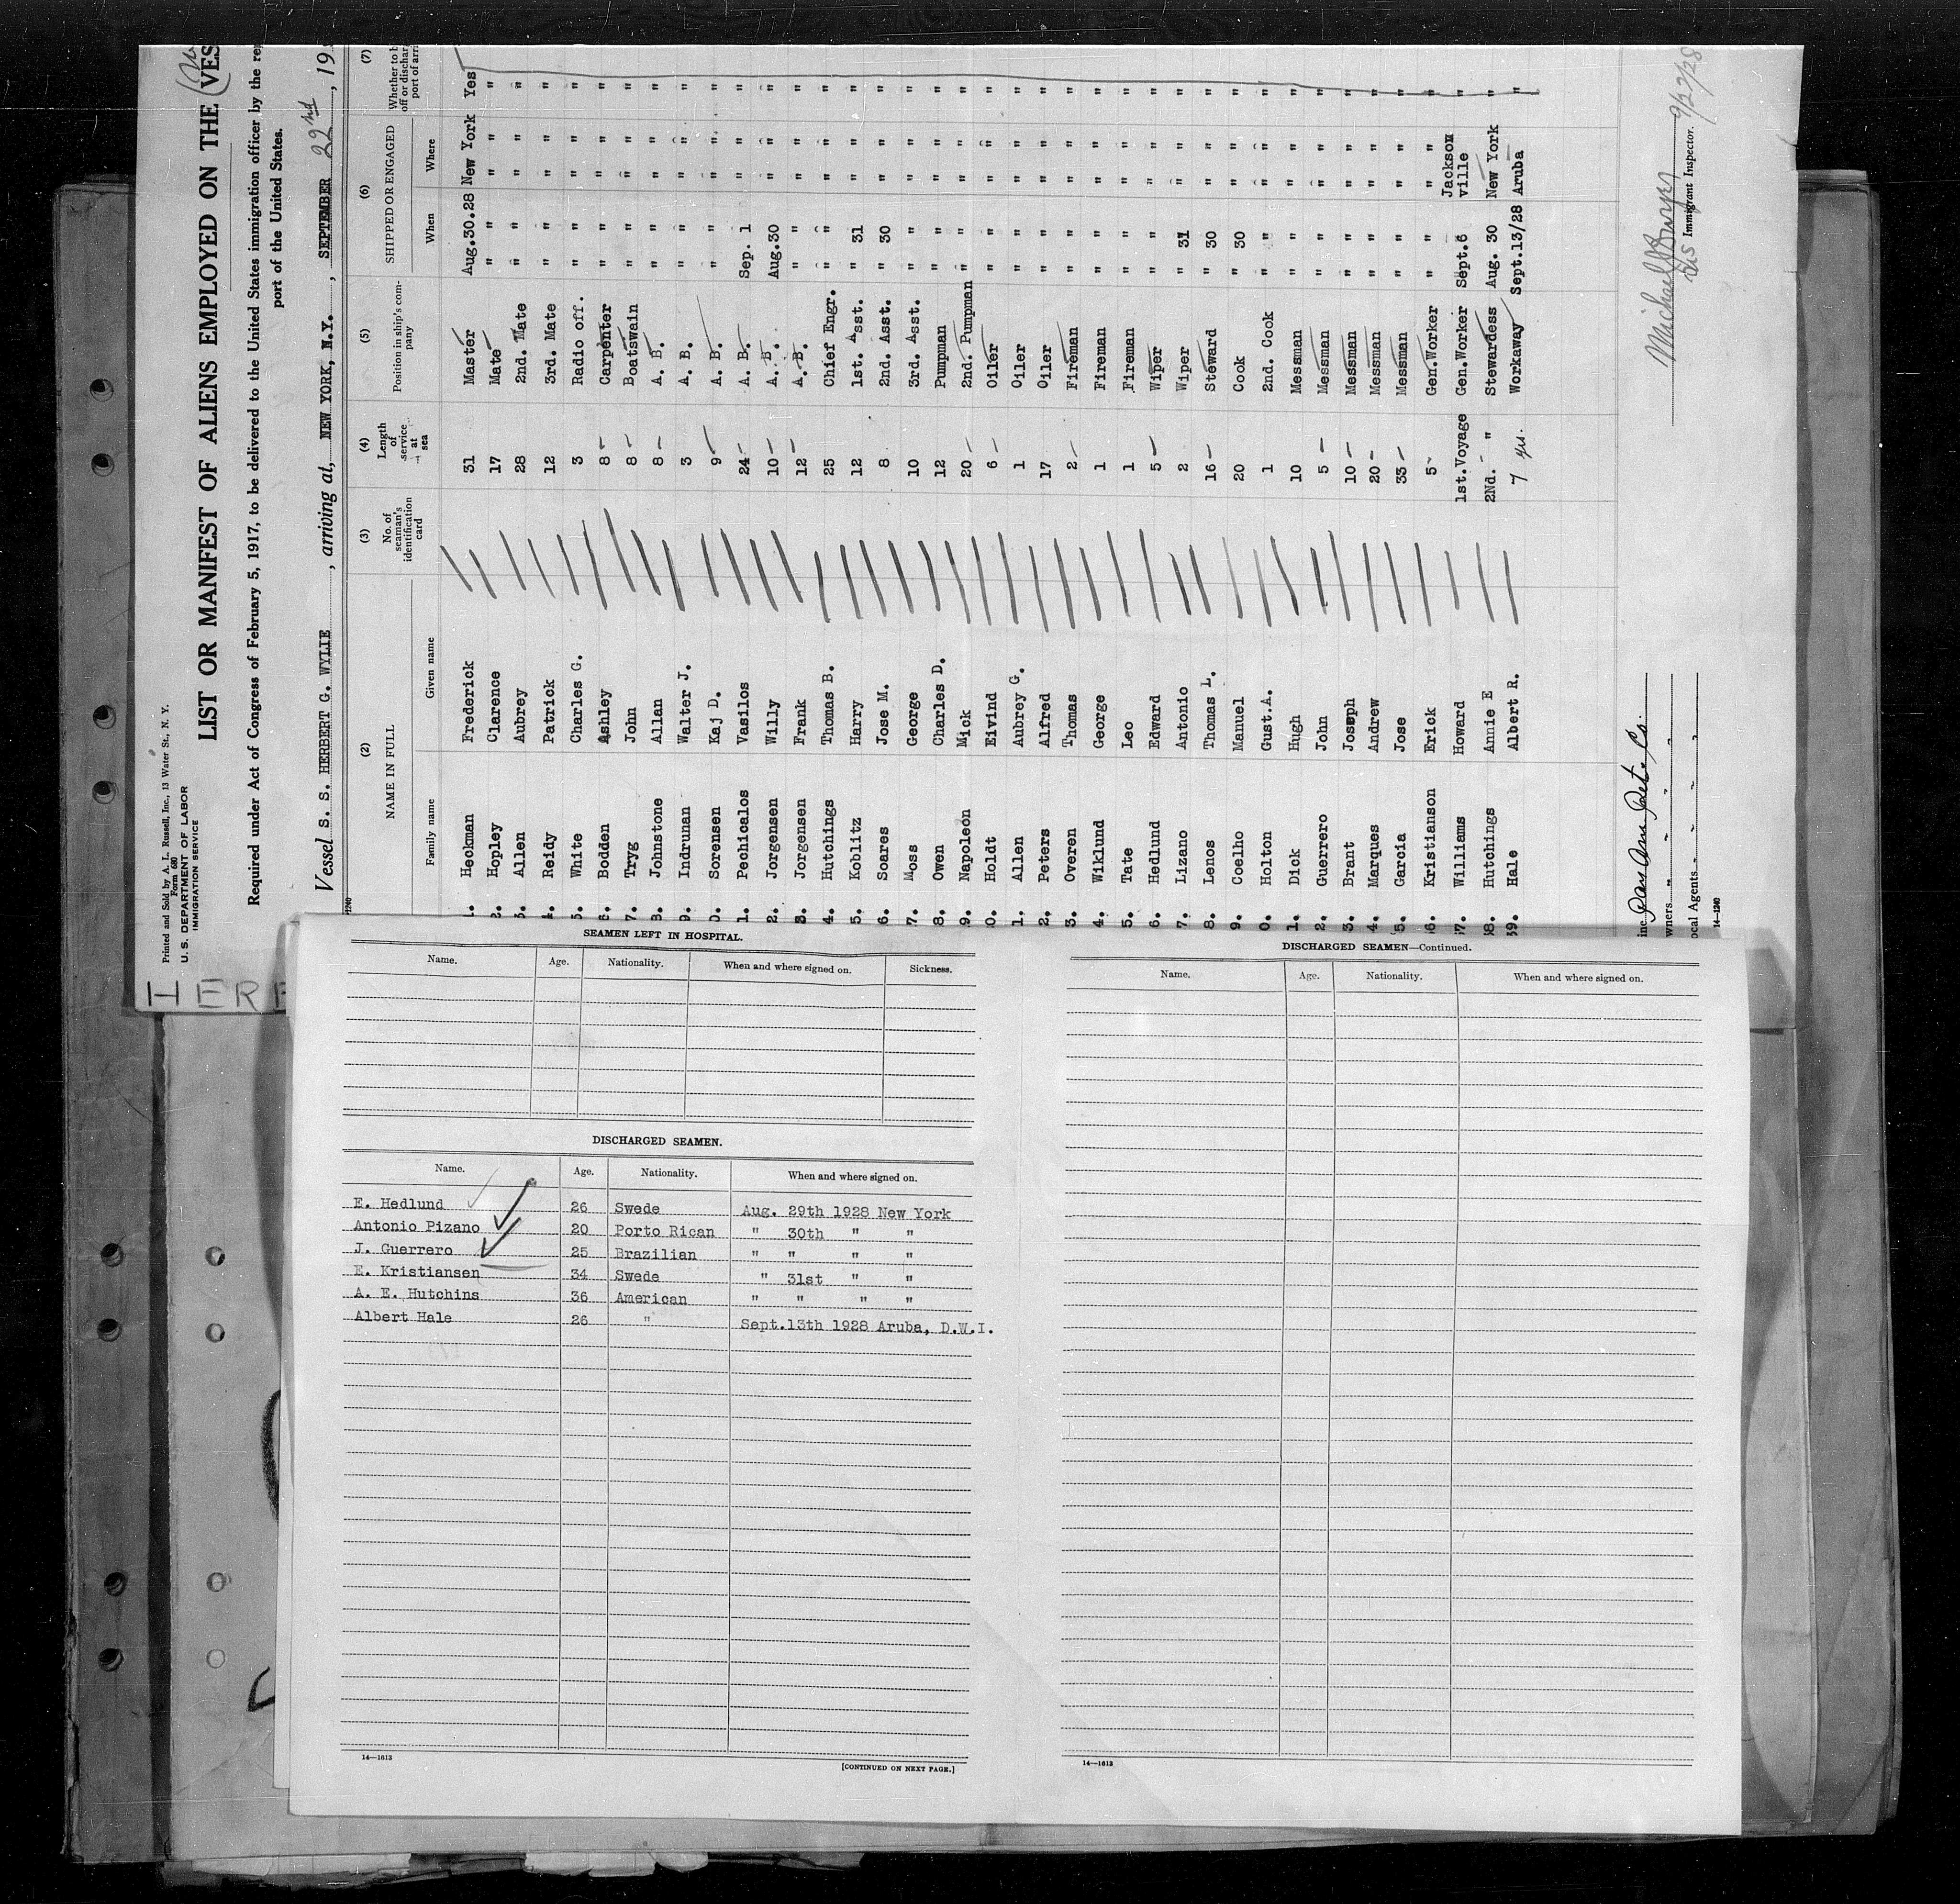 Printed and Sold by A. L. Russell, Inc., 13 Water St., N. Y.
Form 680
U. S. DEPARTMENT OF LABOR
IMMIGRATION SERVICE
LIST OR MANIFEST OF ALIENS EMPLOYED ON THE VES
Required under Act of Congress of February 5, 1917, to be delivered to the United States immigration officer by the rep
port of the United States.
Vessel S. S. HERBERT G. WYLIE, arriving at, NEW YORK, N.Y., SEPTEMBER 22nd, 19
(2) (3) (4) (5) (6) (7)
NAME IN FULL No. of seaman's identification card Length of service at sea Position in ship's company SHIPPED OR ENGAGED
Family name Given name When Where
1. Heckman Frederick 31 Master Aug.30.28 New York Yes
2. Hopley Clarence 17 Mate " " " " "
3. Allen Aubrey 28 2nd. Mate " " " " "
4. Reidy Patrick 12 3rd. Mate " " " " "
5. White Charles G. 3 Radio off. " " " " "
6. Bodden Ashley 8 Carpenter " " " " "
7. Tryg John 8 Boatswain " " " " "
8. Johnstone Allan 8 A. B. " " " " "
9. Indrunan Walter J. 3 A. B. " " " " "
0. Sorensen Kaj D. 9 A. B. " " " " "
1. Pechicalos Vasilos 24 A. B. Sep. 1 " " "
2. Jorgensen Willy 10 A. B. Aug.30 " " "
3. Jorgensen Frank 12 A. B. " " " " "
4. Hutchings Thomas B. 25 Chief Engr. " " " " "
5. Koblitz Harry 12 1st. Asst. " 31 " " "
6. Soares Jose M. 8 2nd. Asst. " 30 " " "
7. Moss George 10 3rd. Asst. " " " " "
8. Owen Charles D. 12 Pumpman " " " " "
9. Napoleon Mick 20 2nd. Pumpman " " " " "
0. Holdt Eivind 6 Oiler " " " " "
1. Allen Aubrey G. 1 Oiler " " " " "
2. Peters Alfred 17 Oiler " " " " "
3. Overen Thomas 2 Fireman " " " " "
4. Wiklund George 1 Fireman " " " " "
5. Tate Leo 1 Fireman " " " " "
6. Hedlund Edward 5 Wiper " " " " "
7. Lizano Antonio 2 Wiper " 31 " " "
8. Lenos Thomas L. 16 Steward " 30 " " "
9. Coelho Manuel 20 Cook " 30 " " "
0. Holton Gust.A. 1 2nd. Cook " " " " "
1. Dick Hugh 10 Messman " " " " "
2. Guerrero John 5 Messman " " " " "
3. Brant Joseph 10 Messman " " " " "
4. Marques Andrew 20 Messman " " " " "
5. Garcia Jose 33 Messman " " " " "
6. Kristianson Erick 5 Gen.Worker " " " " "
37. Williams Howard 1st.Voyage Gen.Worker Sept.6 Jackson ville "
38. Hutchings Annie E 2Nd. " Stewardess Aug. 30 New York "
39. Hale Albert R. 7 yrs. Workaway Sept.13/28 Aruba "
Pan Am Pet. Co.
wners " " " "
ocal Agents " " "
14—1240
Immigrant Inspector.
9/22/28
HERB
SEAMEN LEFT IN HOSPITAL.
Name. Age. Nationality. When and where signed on. Sickness.
DISCHARGED SEAMEN.
Name. Age. Nationality. When and where signed on.
E. Hedlund 26 Swede Aug. 29th 1928 New York
Antonio Pizano 20 Porto Rican " 30th " "
J. Guerrero 25 Brazilian " " " "
E. Kristiansen 34 Swede " 31st " "
A. E. Hutchins 36 American " " " "
Albert Hale 26 " Sept.13th 1928 Aruba, D.W.I.
14—1613
[CONTINUED ON NEXT PAGE.]
DISCHARGED SEAMEN—Continued.
Name. Age. Nationality. When and where signed on.
14—1613